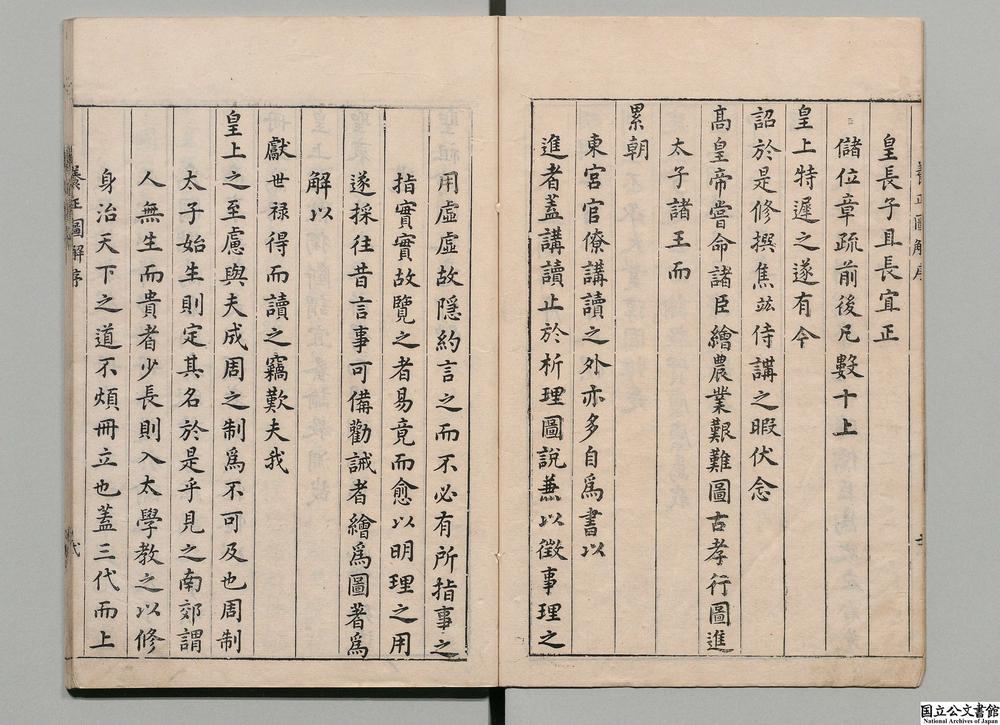 養正圖解序
皇長子且長宜正
儲位章疏前後凡數十上
皇上特遲之遂有今
詔於是修撰焦竑侍講之暇伏念
高皇帝嘗命諸臣繪農業艱難圖古孝行圖進
太子諸王而
累朝
東宮官僚講讀之外亦多自為書以
進者蓋講讀止於析理圖說兼以徵事理之
用虛虛故隱約言之而不必有所指事之
指實實故覽之者易竟而愈以明理之用
遂採往昔言事可備勸誡者繪為圖著為
解以
獻世祿得而讀之竊歎夫我
皇上之至慮與夫成周之制為不可及也周制
太子始生則定其名於是乎見之南郊謂
人無生而貴者少長則入太學教之以修
身治天下之道不煩冊立也蓋三代而上
養正圖解序
国立公文書館
National Archives of Japan